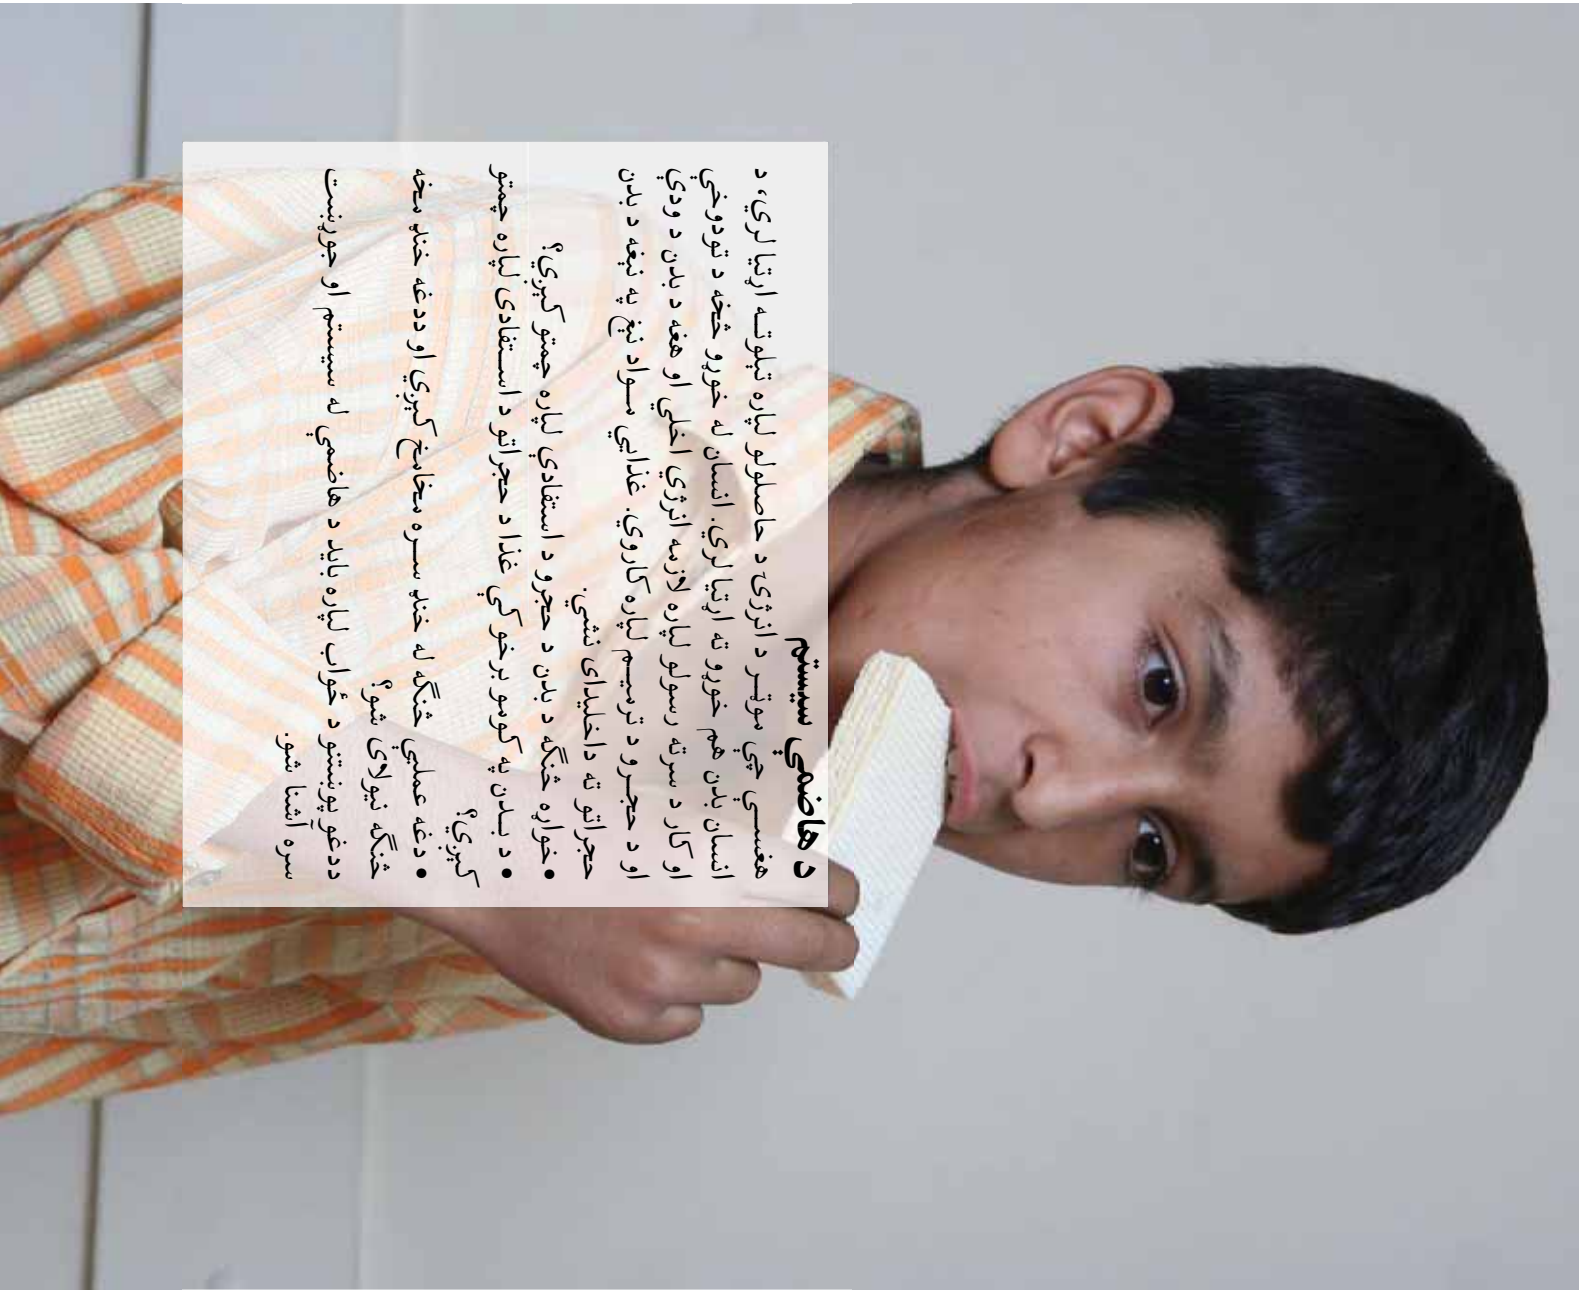 د هاضمې سیستم
هغسې چې موټر د انرژۍ د حاصلولو لپاره تیلو ته اړتیا لري، د
انسان بدن هم خوړو ته اړتیا لري. انسان له خوړو څخه د تودوخې
او کار د سرته رسولو لپاره لازمه انرژي اخلي او هغه د بدن د ودې
او د حجرو د ترمیم لپاره کاروي. غذایي مواد نیغ په نیغه د بدن
حجراتو ته داخلیدای نشي.
• خواړه څنګه د بدن د حجرو د استفادې لپاره چمتو کیږي؟
• د بدن په کومو برخو کې غذا د حجراتو د استفادی لپاره چمتو
کیږي؟
• دغه عملیې څنګه له خنډ سره مخامخ کیږي او ددغه خنډ مخه
څنګه نیولای شو؟
ددغو پوښتنو د ځواب لپاره باید د هاضمې له سیستم او جوړښت
سره آشنا شو.